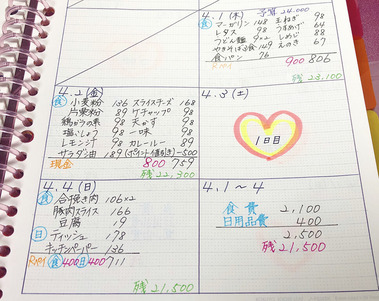 4.1(木) 予算 24,000
食 マーガリン 148 玉ねぎ 98
レタス 98 うすあげ 98
うどん麺 902 しめじ 88
やきそば3食 149 えのき 67
食パン 76
900 806
残 23,100
4.2(金)
食 小麦粉 136 スライスチーズ 168
片栗粉 89 ケチャップ 98
鶏がらの素 98 天かす 98
塩こしょう 98 一味 98
レモン汁 98 カレールー 89
サラダ油 189 (ポイント値引き) -500
現金 800 759
残 22,300
4.3(土)
1日目
4.4(日)
食 合挽き肉 106×2
豚肉スライス 166
豆腐 19
日 ティッシュ 178
キッチンペーパー 136
食400 日400 711
残 21,500
4.1〜4
食費 2,100
日用品費 400
2,500
残 21,500